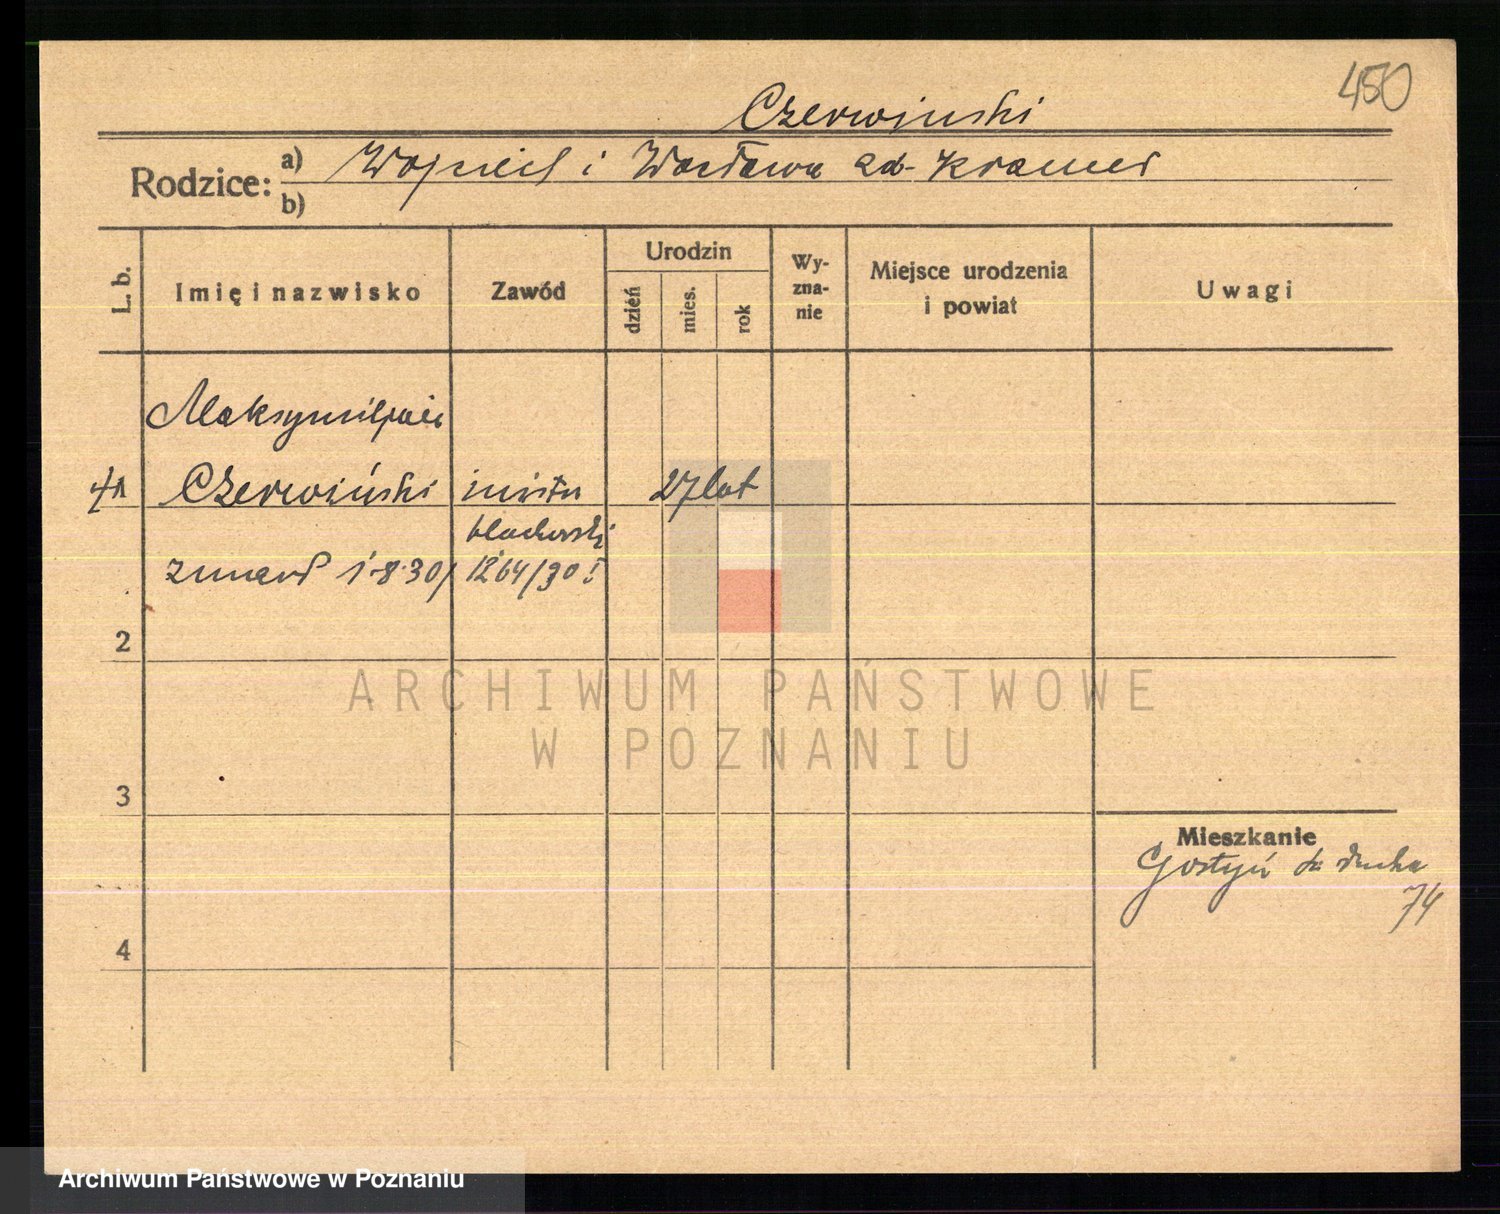 450
Czerwinski
Rodzice:
a) Wojciech i Wacława zd. Kramer
b)
L. b.
Imię i nazwisko
Zawód
Urodzin
dzień
mies.
rok
Wy-
zna-
nie
Miejsce urodzenia
i powiat
Uwagi
Maksymiljan
1 Czerwiński mistrz 27 lat
blacharski
zmarł 1.8.30/ 1264/30 I
2
ARCHIWUM PAŃSTWOWE
W POZNANIU
3
Mieszkanie
Gostyń św. Ducha
74
4
Archiwum Państwowe w Poznaniu